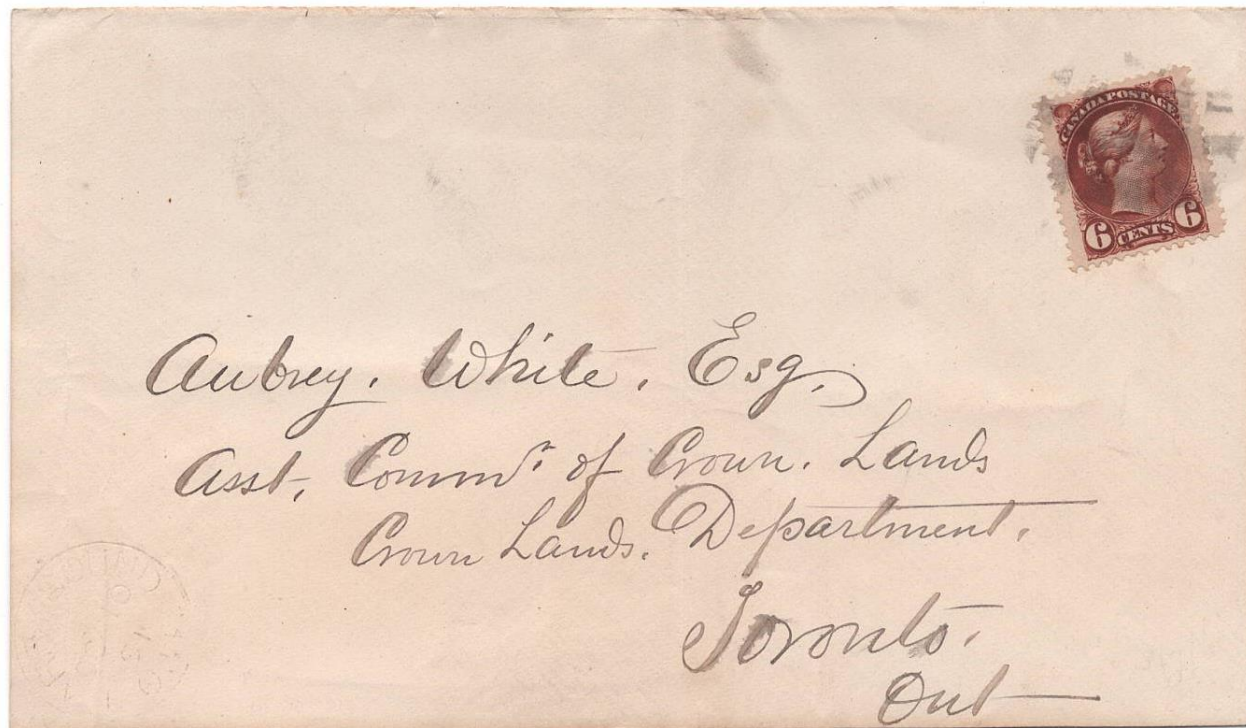 CANADA POSTAGE
6 CENTS 6
Aubrey. White. Esq.
Asst. Commr. of Crown. Lands
Crown Lands. Department.
Toronto.
Ont